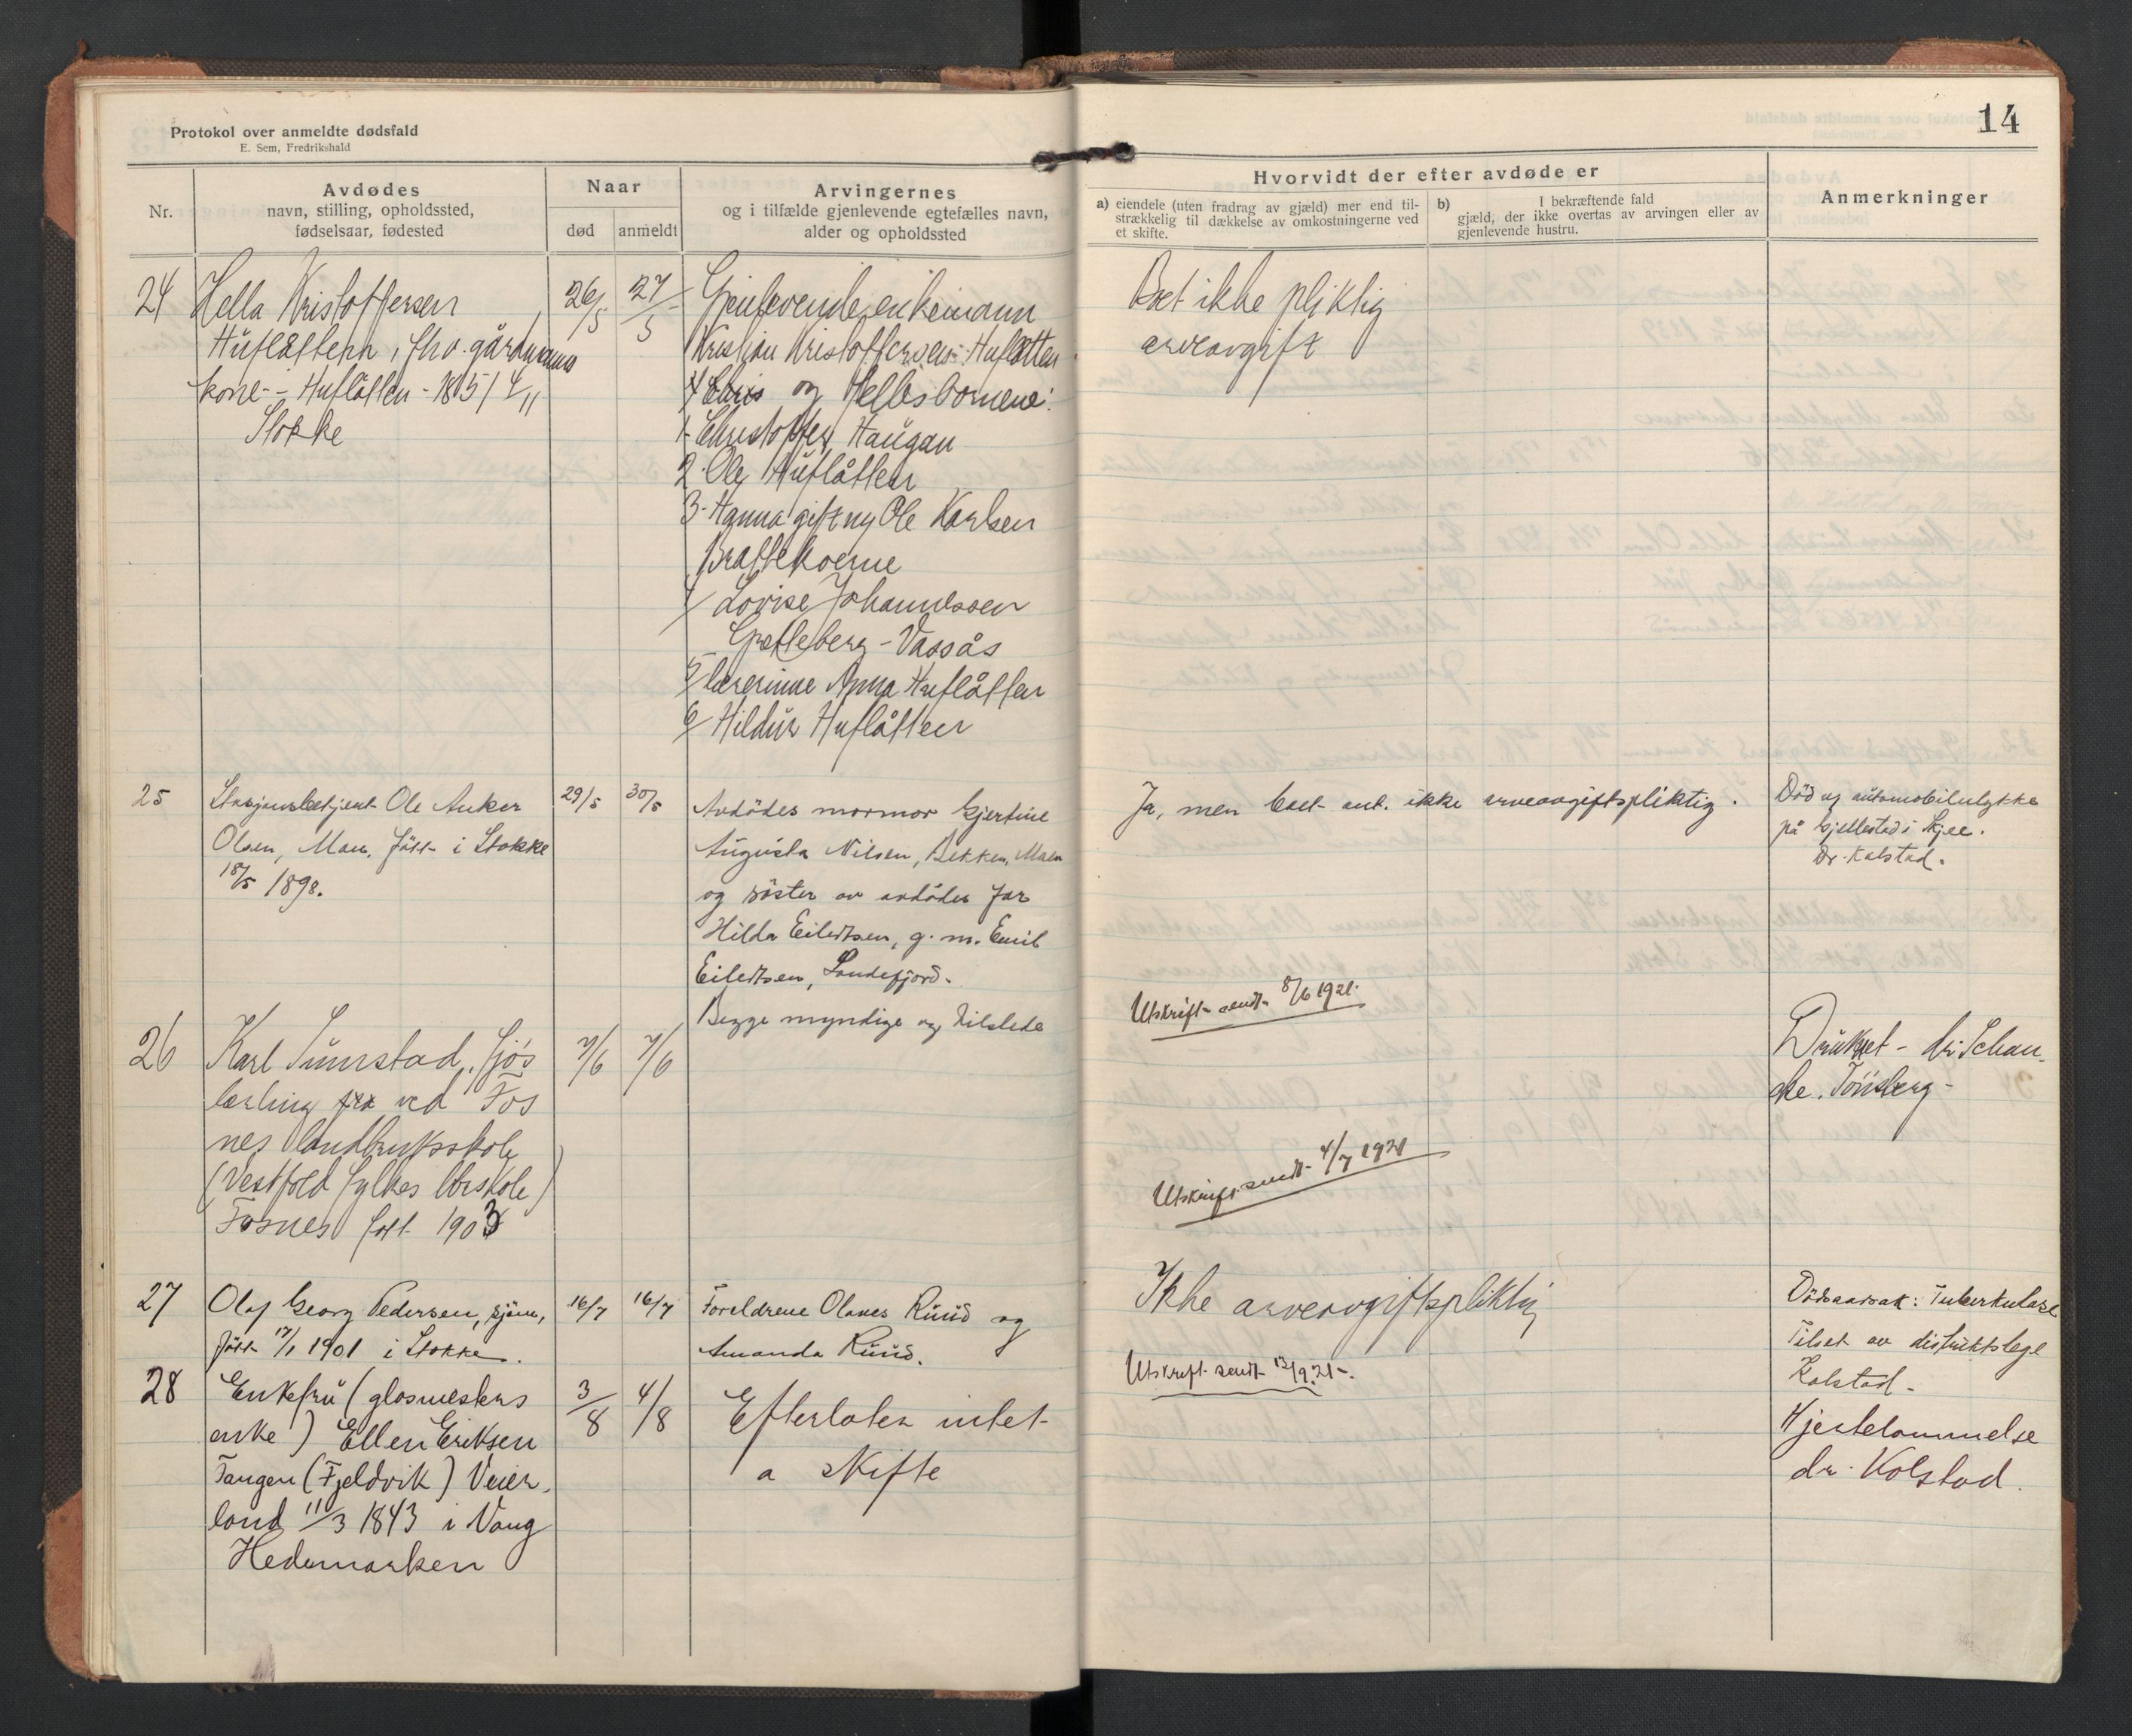 Protokol over anmeldte dødsfald
E. Sem, Fredrikshald
14
Nr.
Avdødes
navn, stilling, opholdssted,
fødselsaar, fødested
Naar
død
anmeldt
Arvingernes
og i tilfælde gjenlevende egtefælles navn,
alder og opholdssted
Hvorvidt der efter avdøde er
a) eiendele (uten fradrag av gjæld) mer end til-
strækkelig til dækkelse av omkostningerne ved
et skifte.
b) I bekræftende fald
gjæld, der ikke overtas av arvingen eller av
gjenlevende hustru.
Anmerkninger
24
Hella Kristoffersen
Huflåtten, fhv. gårdmanns
kone - Huflåtten - 1845
Stokke
26/5
27/5
Gjenlevende enkemann
Kristian Kristoffersen Huflåtten
og Hellis börnene:
1- Christoffer Haugan
2. Ole Huflåtten
3- Hanna gift m Ole Karlsen
Brattekverne
4/ Lovise Johannessen
Gretteberg - Vassås
5/ lærerinne Anna Huflåtten
6/ Hildur Huflåtten
Boet ikke pliktig
arveavgift
25
Stasjonsbetjent Ole Anker
Olsen, Moen, født i Stokke
18/5 1898.
29/5
30/5
Avdödes mormor Gjertine
Augusta Nilsen, Bekken, Moen
og söster av avdödes far
Hilda Eilertsen, g. m. Emil
Eilertsen, Sandefjord.
Begge myndige og tilstede
Ja, men boet ant. ikke arveavgiftspliktig.
Död v automobilulykke
på Gjellestad i Skjee.
Dr. Kolstad.
Utskrift sendt 8/6 1921.
26
Karl Sunnstad,
lærling fra ved Fos
nes landbruksskole
(Vestfold fylkes lbrskole)
Fosnes født 1903
7/6
7/6
Druknet - dr. Schan-
che. Tönsberg -
Utskrift sendt 4/7 1921
27
Olaf Georg Pedersen, sjöm,
født 17/1 1901 i Stokke.
16/7
16/7
Foreldrene Olaves Ruud og
Amanda Ruud.
Ikke arveavgiftspliktig
Dödsaarsak: Tuberkulose
Tilset av distriktslege
Kolstad -
Utskrift sendt 13/9.21-.
28
Enkefru (glosmesters
enke) Ellen Eriksen
Tangen (Fjeldvik) Veier-
land 11/3 1843 i Vang
Hedemarken
3/8
4/8
Efterlater intet
a skifte
Hjertelammelse
dr. Kolstad.